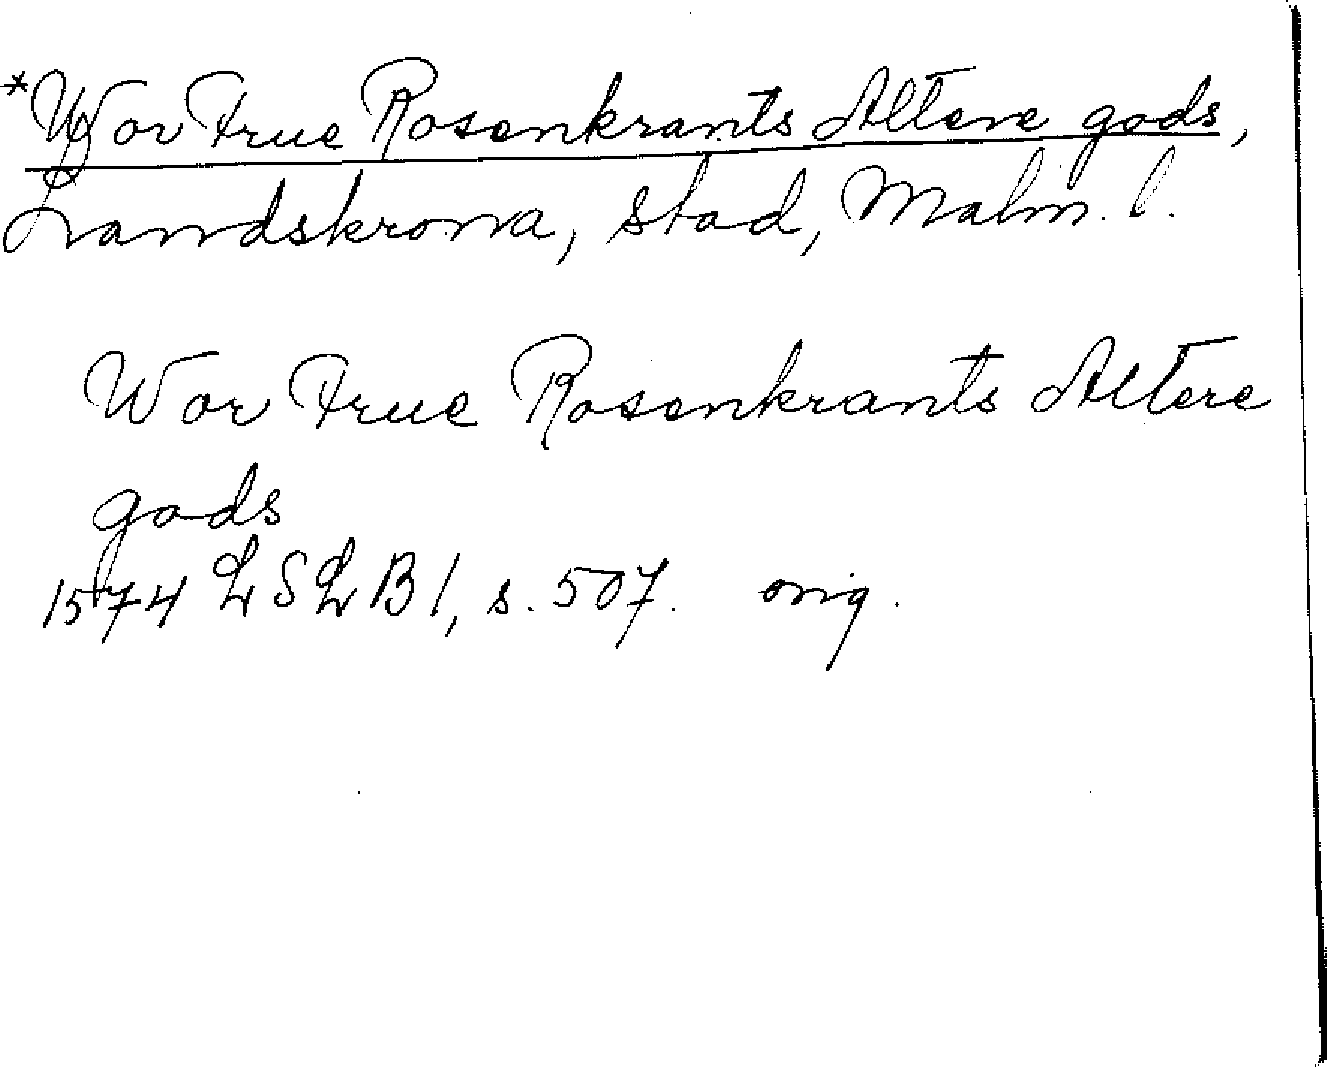 *Wor Frue Rosenkrants Altere gods,
Landskrona, stad, Malm. l.
Wor Frue Rosenkrants Altere
gods
1574 LSLB 1, s. 507. orig.